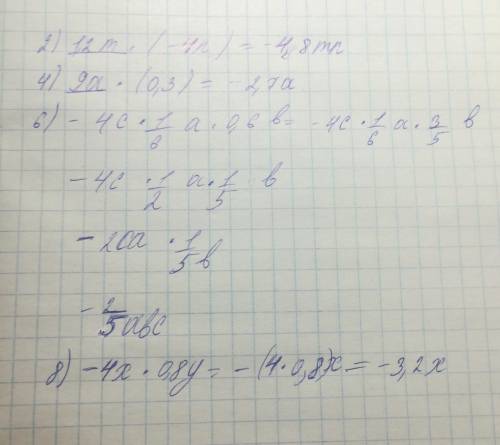 2) 12m · (-4n) = -4,8mn
4) 9a · (0,3) = -2,7a
6) -4c · 1/6 a · 0,6 b = -4c · 1/6 a · 3/5 b
-4c · 1/2 a · 1/5 b
-2ca · 1/5 b
-2/5 abc
8) -4x · 0,8y = -(4 · 0,8)x = -3,2x